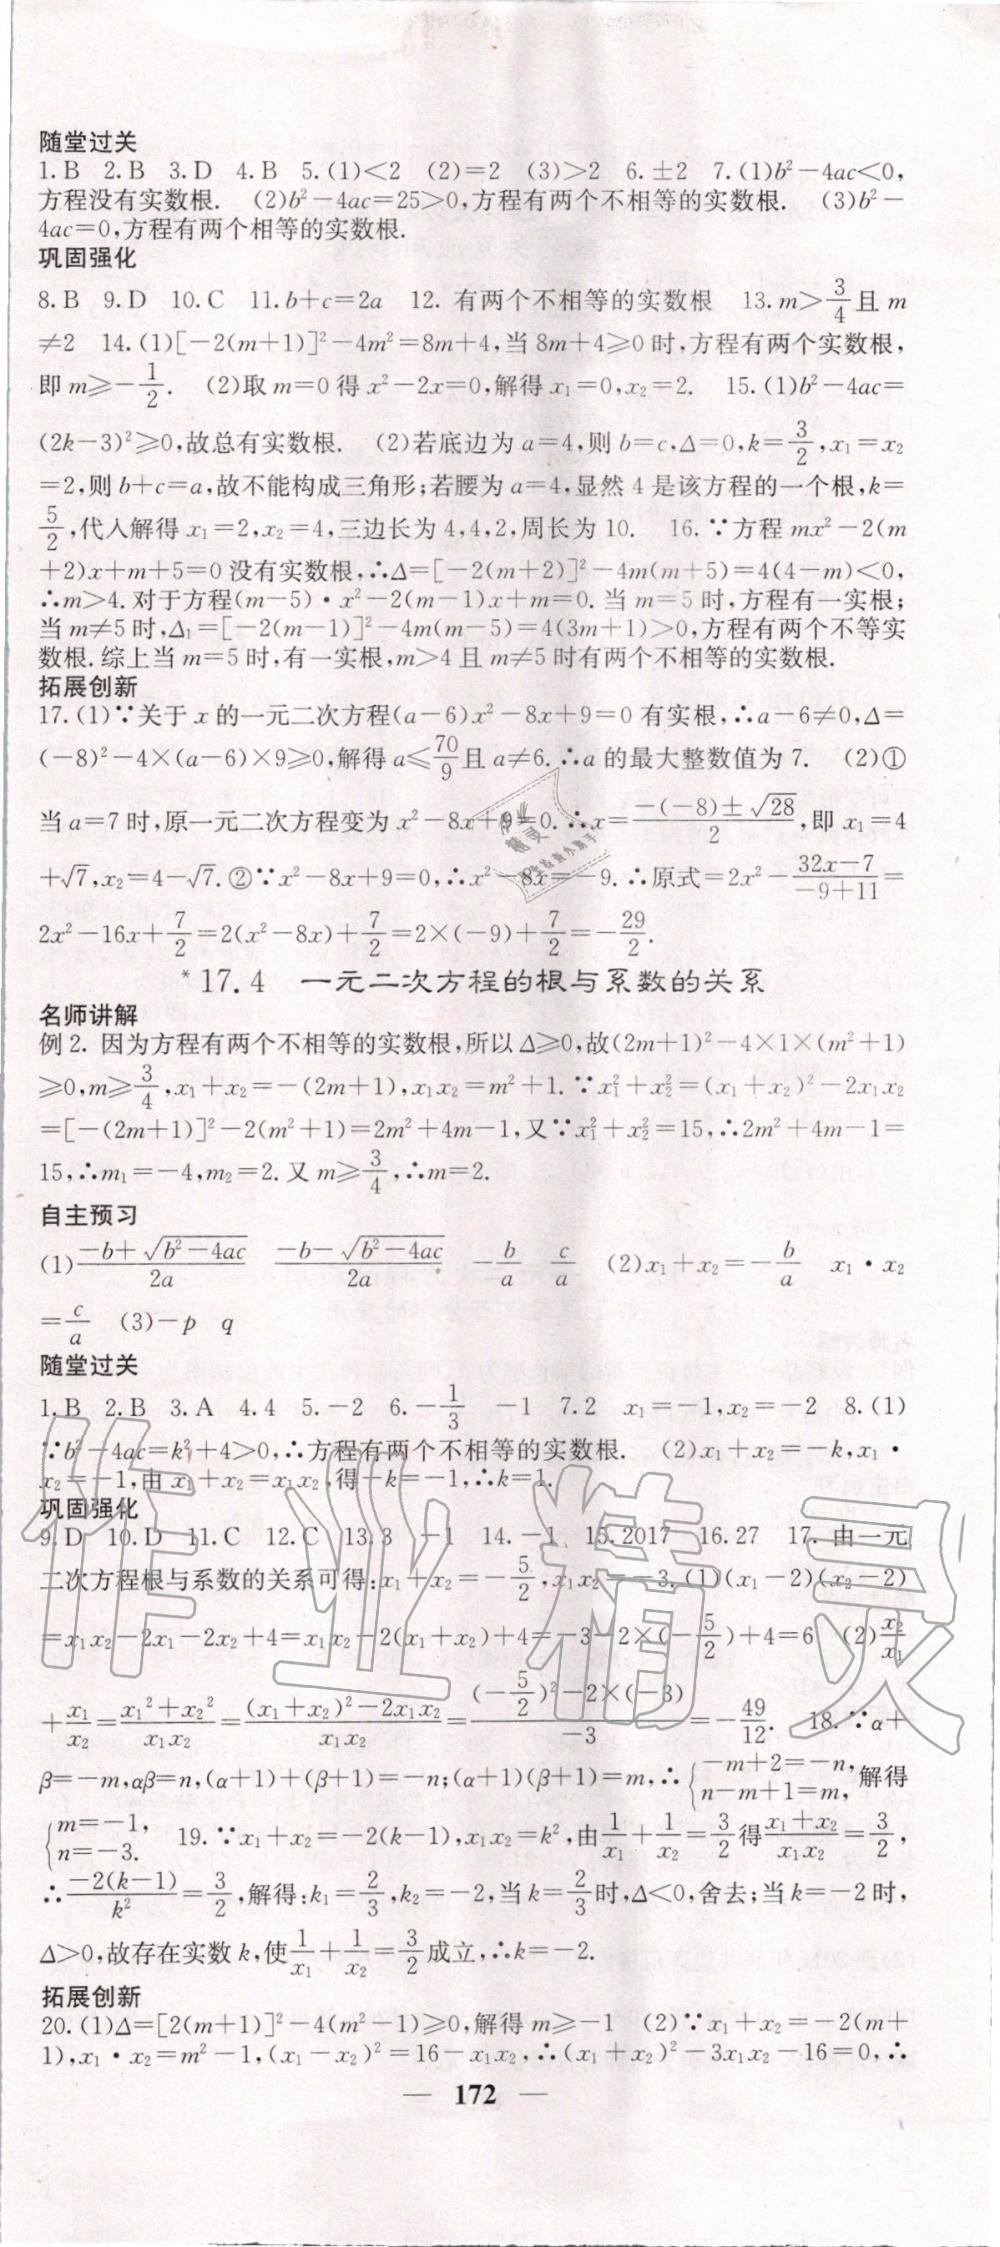 随堂过关
1.B 2.B 3.D 4.B 5.(1)<2 (2)=2 (3)>2 6.±2 7.(1)b²-4ac<0,
方程没有实数根. (2)b²-4ac=25>0,方程有两个不相等的实数根. (3)b²-
4ac=0,方程有两个相等的实数根.
巩固强化
8.B 9.D 10.C 11.b+c=2a 12. 有两个不相等的实数根 13.m>3/4且m
≠2 14.(1)[-2(m+1)]²-4m²=8m+4,当8m+4≥0时,方程有两个实数根,
即m≥-1/2. (2)取m=0得x²-2x=0,解得x₁=0,x₂=2. 15.(1)b²-4ac=
(2k-3)²≥0,故总有实数根. (2)若底边为a=4,则b=c,Δ=0,k=3/2,x₁=x₂
=2,则b+c=a,故不能构成三角形;若腰为a=4,显然4是该方程的一个根,k=
5/2,代入解得x₁=2,x₂=4,三边长为4,4,2,周长为10. 16.∵方程mx²-2(m
+2)x+m+5=0没有实数根,∴Δ=[-2(m+2)]²-4m(m+5)=4(4-m)<0,
∴m>4.对于方程(m-5)·x²-2(m-1)x+m=0.当m=5时,方程有一实根;
当m≠5时,Δ₁=[-2(m-1)]²-4m(m-5)=4(3m+1)>0,方程有两个不等实
数根.综上当m=5时,有一实根,m>4且m≠5时有两个不相等的实数根.
拓展创新
17.(1)∵关于x的一元二次方程(a-6)x²-8x+9=0有实根,∴a-6≠0,Δ=
(-8)²-4×(a-6)×9≥0,解得a≤70/9且a≠6.∴a的最大整数值为7. (2)①
当a=7时,原一元二次方程变为x²-8x+9=0.∴x=(-(-8)±√28)/2,即x₁=4
+√7,x₂=4-√7.②∵x²-8x+9=0,∴x²-8x=-9.∴原式=2x²-(32x-7)/(-9+11)=
2x²-16x+7/2=2(x²-8x)+7/2=2×(-9)+7/2=-29/2.
*17.4 一元二次方程的根与系数的关系
名师讲解
例2. 因为方程有两个不相等的实数根,所以Δ≥0,故(2m+1)²-4×1×(m²+1)
≥0,m≥3/4,x₁+x₂=-(2m+1),x₁x₂=m²+1.∵x₁²+x₂²=(x₁+x₂)²-2x₁x₂
=[-(2m+1)]²-2(m²+1)=2m²+4m-1,又∵x₁²+x₂²=15,∴2m²+4m-1=
15,∴m₁=-4,m₂=2.又m≥3/4,∴m=2.
自主预习
(1)(-b+√(b²-4ac))/2a (-b-√(b²-4ac))/2a -b/a c/a (2)x₁+x₂=-b/a x₁·x₂
=c/a (3)-p q
随堂过关
1.B 2.B 3.A 4.4 5.-2 6.-1/3 -1 7.2 x₁=-1,x₂=-2 8.(1)
∵b²-4ac=k²+4>0,∴方程有两个不相等的实数根. (2)x₁+x₂=-k,x₁·
x₂=-1,由x₁+x₂=x₁x₂,得-k=-1,∴k=1.
巩固强化
9.D 10.D 11.C 12.C 13.3 -1 14.-1 15.2017 16.27 17. 由一元
二次方程根与系数的关系可得:x₁+x₂=-5/2,x₁x₂=-3.(1)(x₁-2)(x₂-2)
=x₁x₂-2x₁-2x₂+4=x₁x₂-2(x₁+x₂)+4=-3-2×(-5/2)+4=6 (2)x₂/x₁
+x₁/x₂=(x₁²+x₂²)/x₁x₂=((x₁+x₂)²-2x₁x₂)/x₁x₂=((-5/2)²-2×(-3))/-3=-49/12. 18.∵α+
β=-m,αβ=n,(α+1)+(β+1)=-n;(α+1)(β+1)=m,∴{-m+2=-n, n-m+1=m,解得
{m=-1, n=-3. 19.∵x₁+x₂=-2(k-1),x₁x₂=k²,由1/x₁+1/x₂=3/2得(x₁+x₂)/x₁x₂=3/2,
∴-2(k-1)/k²=3/2,解得:k₁=2/3,k₂=-2,当k=2/3时,Δ<0,舍去;当k=-2时,
Δ>0,故存在实数k,使1/x₁+1/x₂=3/2成立,∴k=-2.
拓展创新
20.(1)Δ=[2(m+1)]²-4(m²-1)≥0,解得m≥-1 (2)∵x₁+x₂=-2(m+
1),x₁·x₂=m²-1,(x₁-x₂)²=16-x₁x₂,∴(x₁+x₂)²-3x₁x₂-16=0,∴
— 172 —
作业精灵